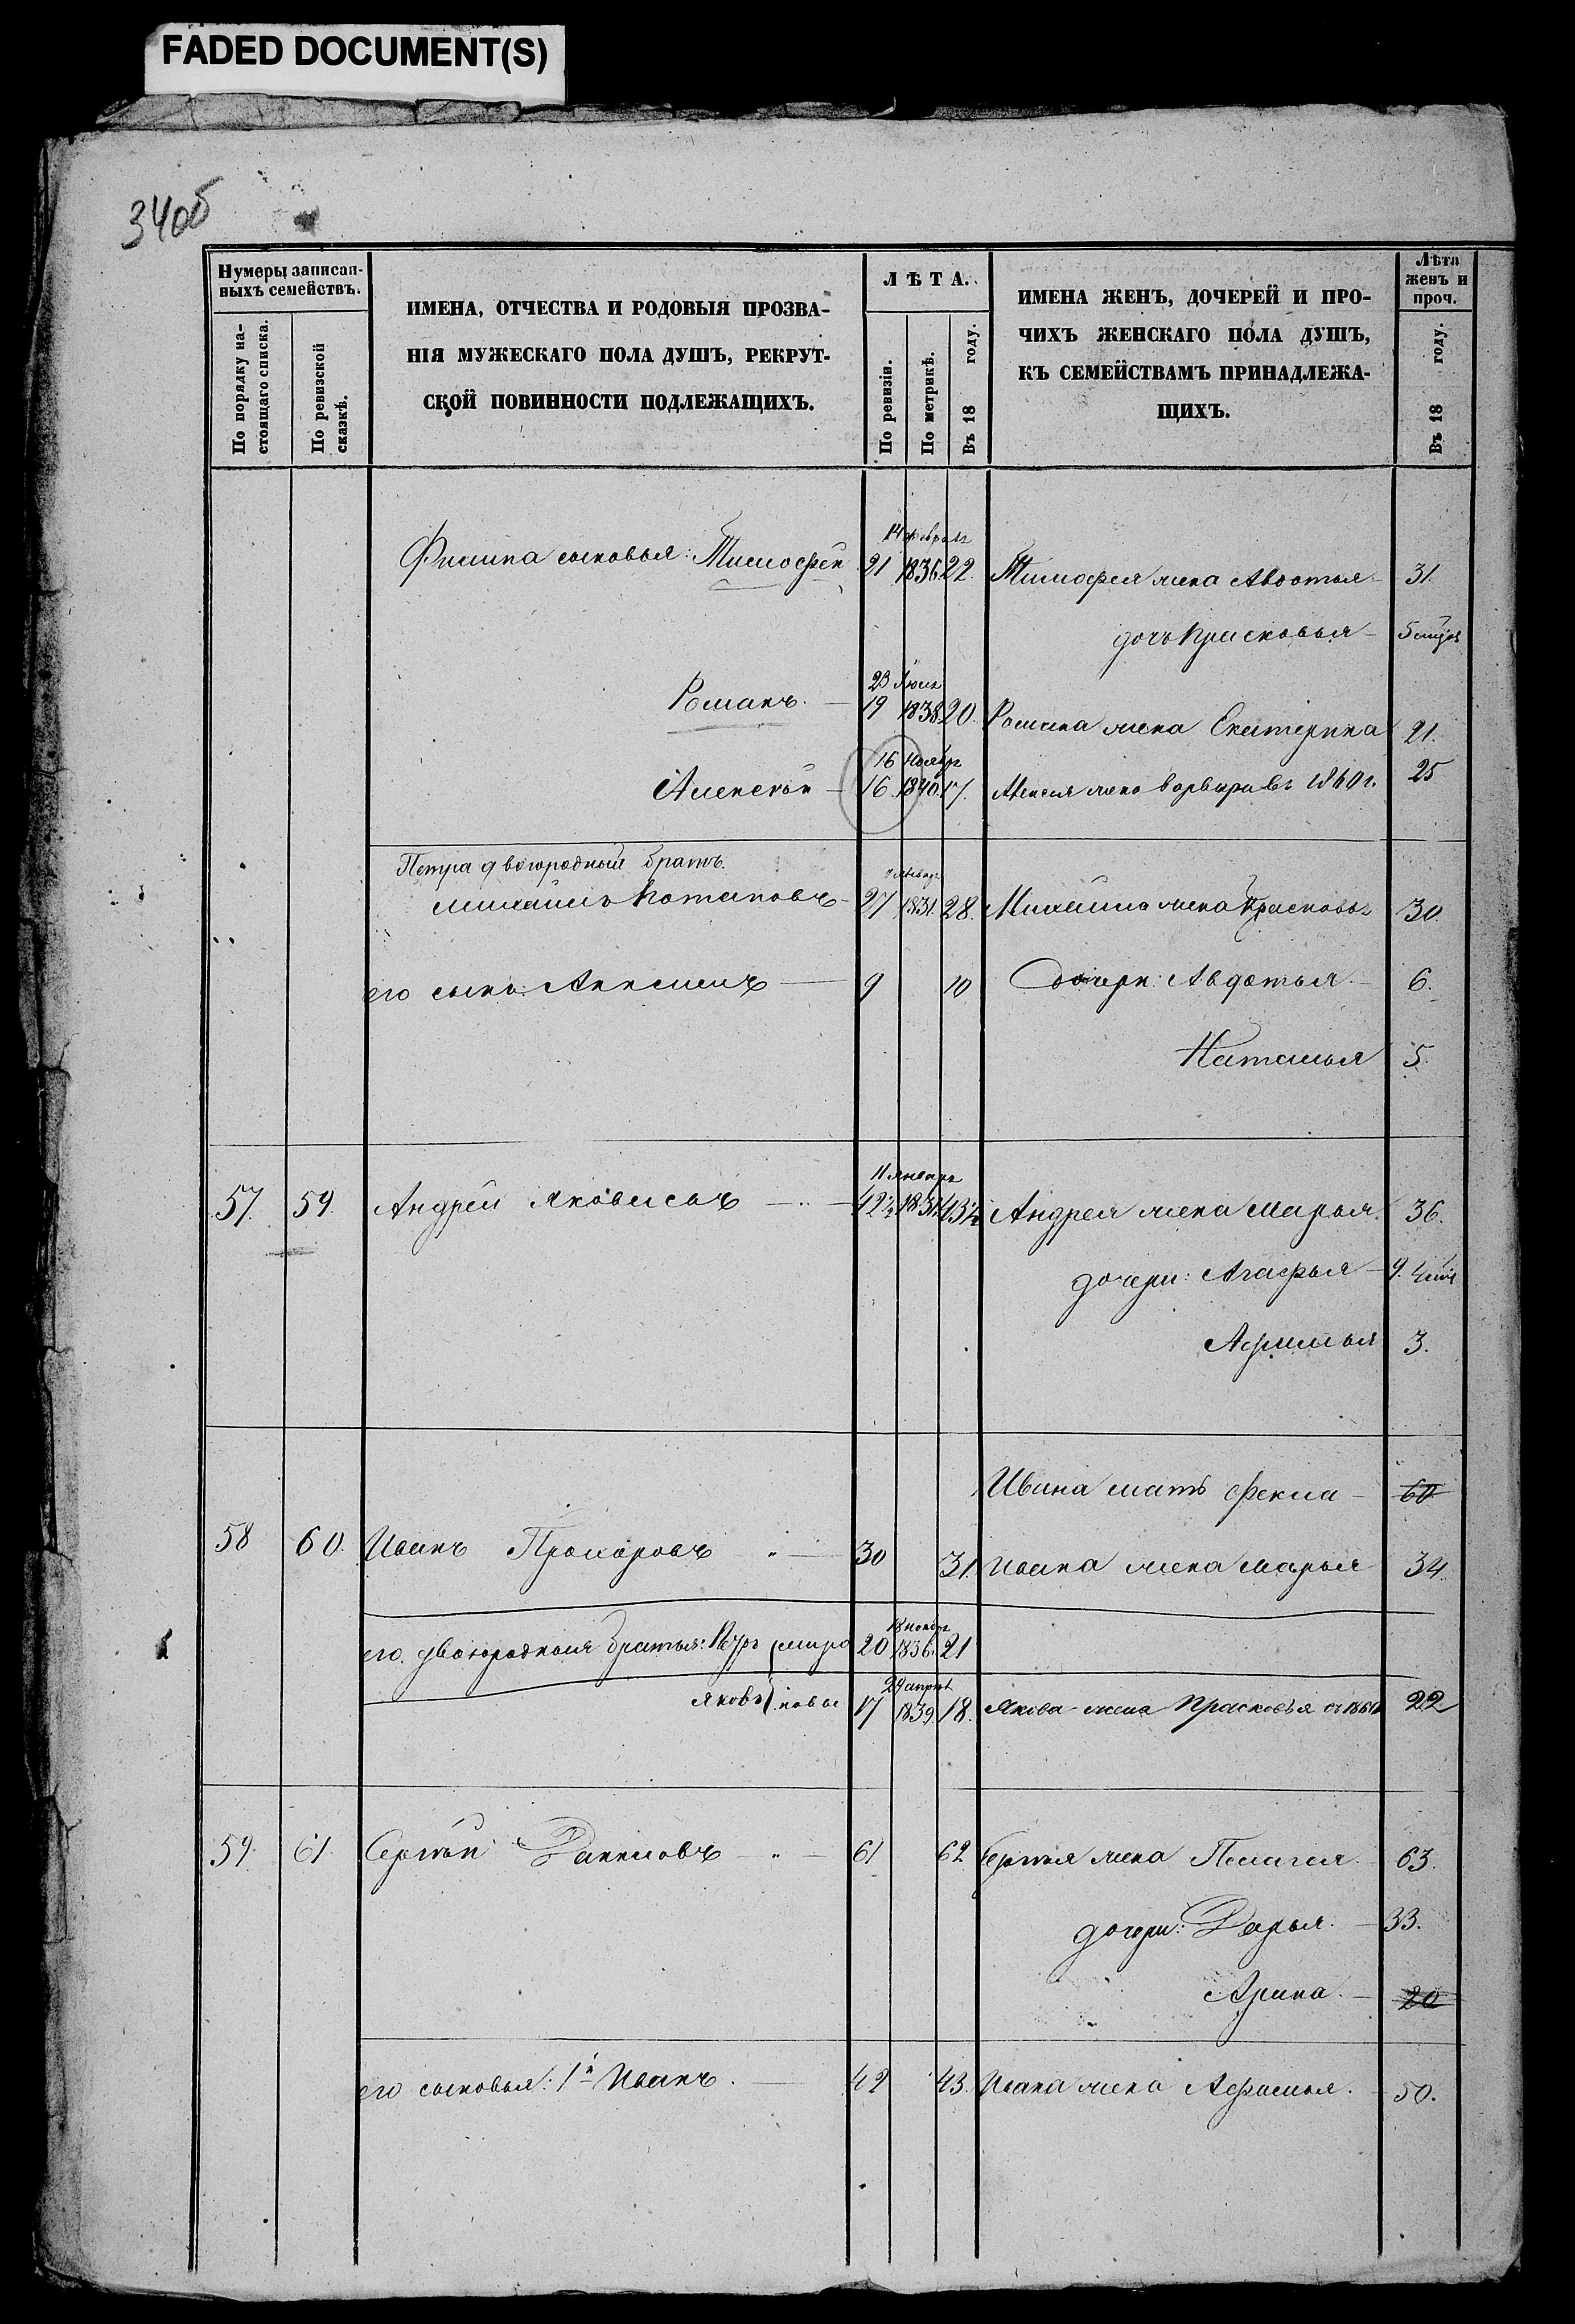 FADED DOCUMENT(S)
34об
Нумеры записан-
ныхъ семействъ.
По порядку на-
стоящаго списка.
По ревизской
сказкѣ.
ИМЕНА, ОТЧЕСТВА И РОДОВЫЯ ПРОЗВА-
НІЯ МУЖЕСКАГО ПОЛА ДУШЪ, РЕКРУТ-
СКОЙ ПОВИННОСТИ ПОДЛЕЖАЩИХЪ.
ЛѢТА.
По ревизіи.
По метрикѣ.
Въ 18 году.
ИМЕНА ЖЕНЪ, ДОЧЕРЕЙ И ПРО-
ЧИХЪ ЖЕНСКАГО ПОЛА ДУШЪ,
КЪ СЕМЕЙСТВАМЪ ПРИНАДЛЕЖА-
ЩИХЪ.
Лѣта
женъ и
проч.
Въ 18 году.
14 февраля
Филипа сыновья: Тимофей 21 1836 22. Тимофея жена Авдотья 31.
дочь Прасковья 5
23 Іюля
Романъ. 19 1838 20. Романа жена Екатерина 21.
16 Ноябр
Алексѣй 16 1840 17. Алексѣя жена Варвара въ 1860 г. 25
Петра двоюродный братъ.
Январ
Михаилъ Потаповъ 27 1831. 28. Михаила жена Прасковья 30
его сынъ: Анисимъ 9 10 дочери: Авдотья 6.
Наталья 5.
11 Январь
57. 59. Андрей Яковлевъ 42½ 43½ Андрея жена Марья. 36.
дочери: Агафья 9.
Афимья 3.
Ивана мать Фекла 60
58 60. Иванъ Прохоровъ 30 31. Ивана жена Марья 34.
18 ноябр
его двоюродныя братья: 20 1836. 21
29 апрел
Яковъ новы 17 1839 18. Якова жена Прасковья съ 1861 22
59. 61 Сергѣй Даниловъ 61 62 Сергѣя жена Пелагея. 63.
дочери: Дарья. 33.
Арина. 20
его сыновья: 1й Иванъ. 42 43. Ивана жена Афимья. 50.